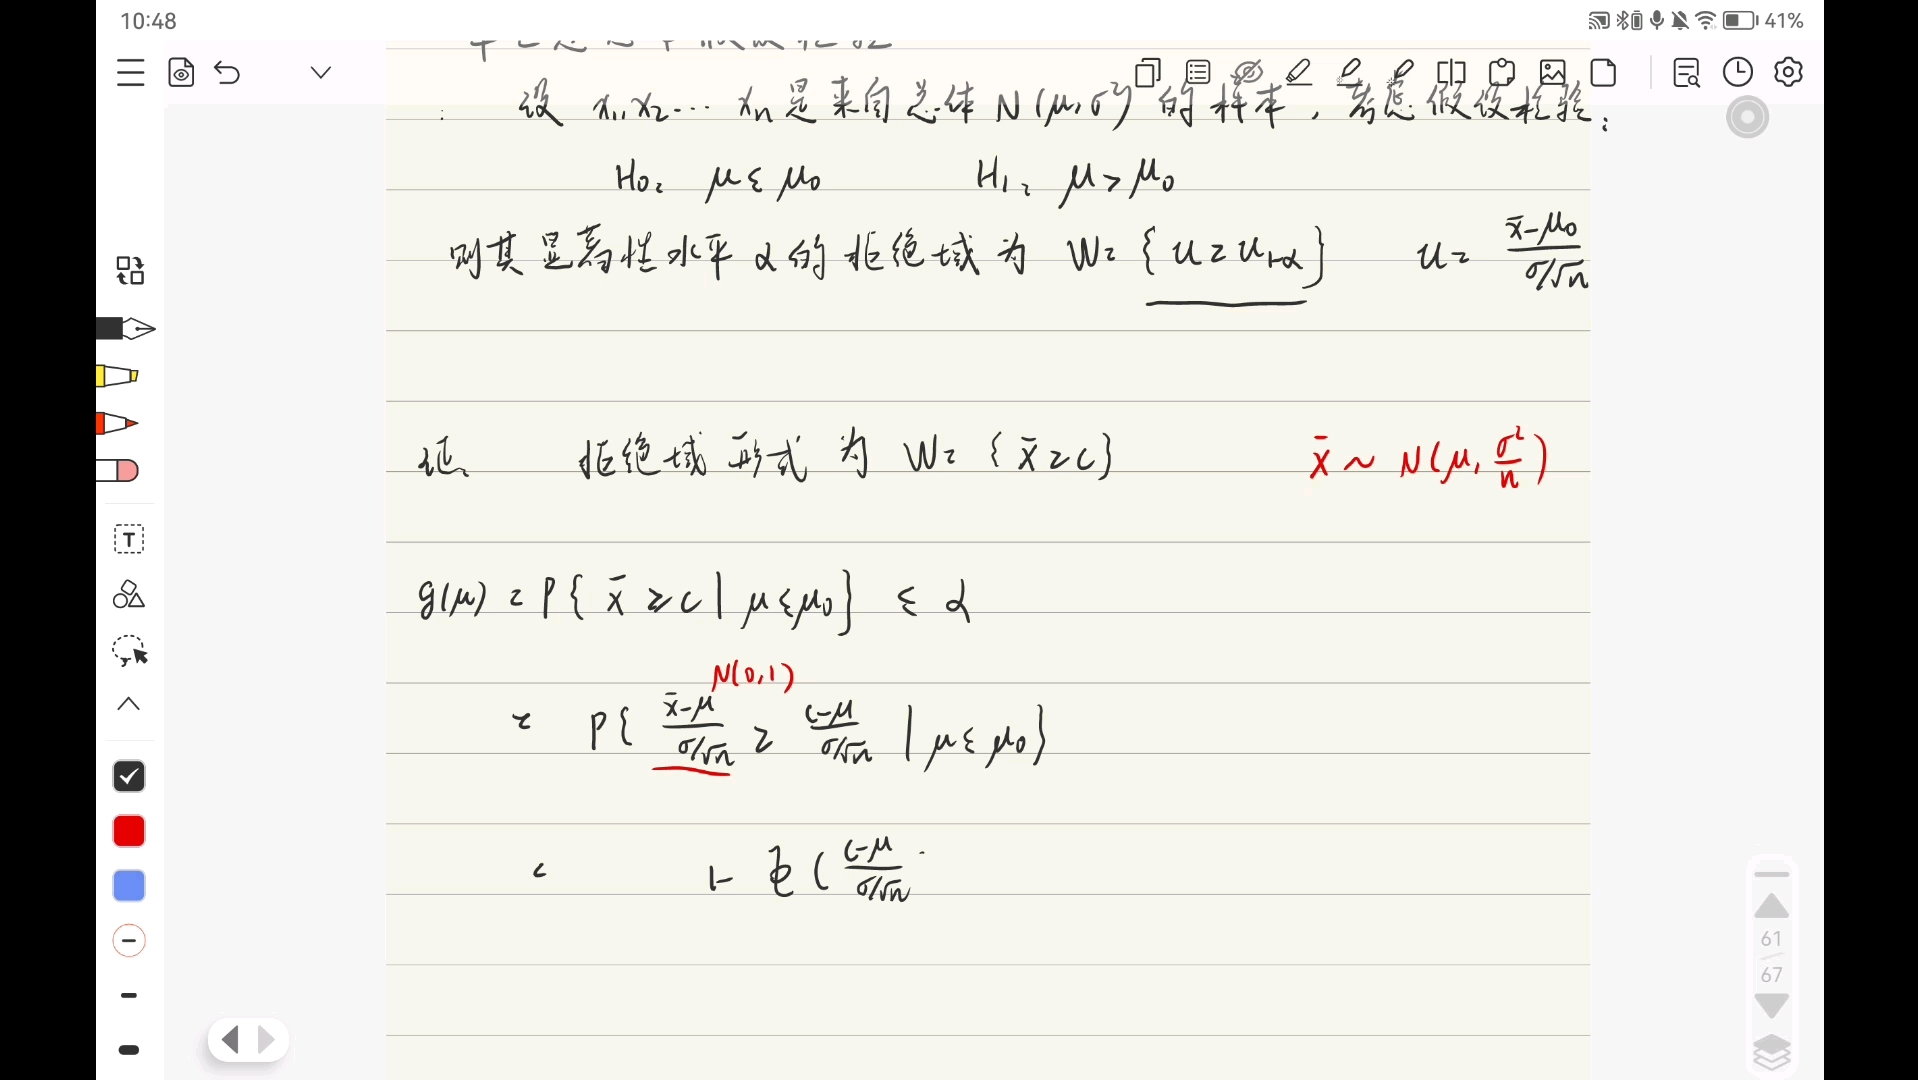 10:48
41%
设 x₁,x₂… xₙ是来自总体 N(μ,σ²) 的样本,考虑假设检验:
H₀: μ≤μ₀ H₁: μ>μ₀
则其显著性水平 α 的拒绝域为 W= {u≥u₁₋α} u= (x̄-μ₀)/(σ/√n)
证: 拒绝域形式为 W= {x̄≥c} x̄ ~ N(μ, σ²/n)
g(μ) = P{ x̄ ≥c | μ≤μ₀} ≤ α
N(0,1)
= P{ (x̄-μ)/(σ/√n) ≥ (c-μ)/(σ/√n) | μ≤μ₀}
= 1- Φ( (c-μ)/(σ/√n)
T
61
67